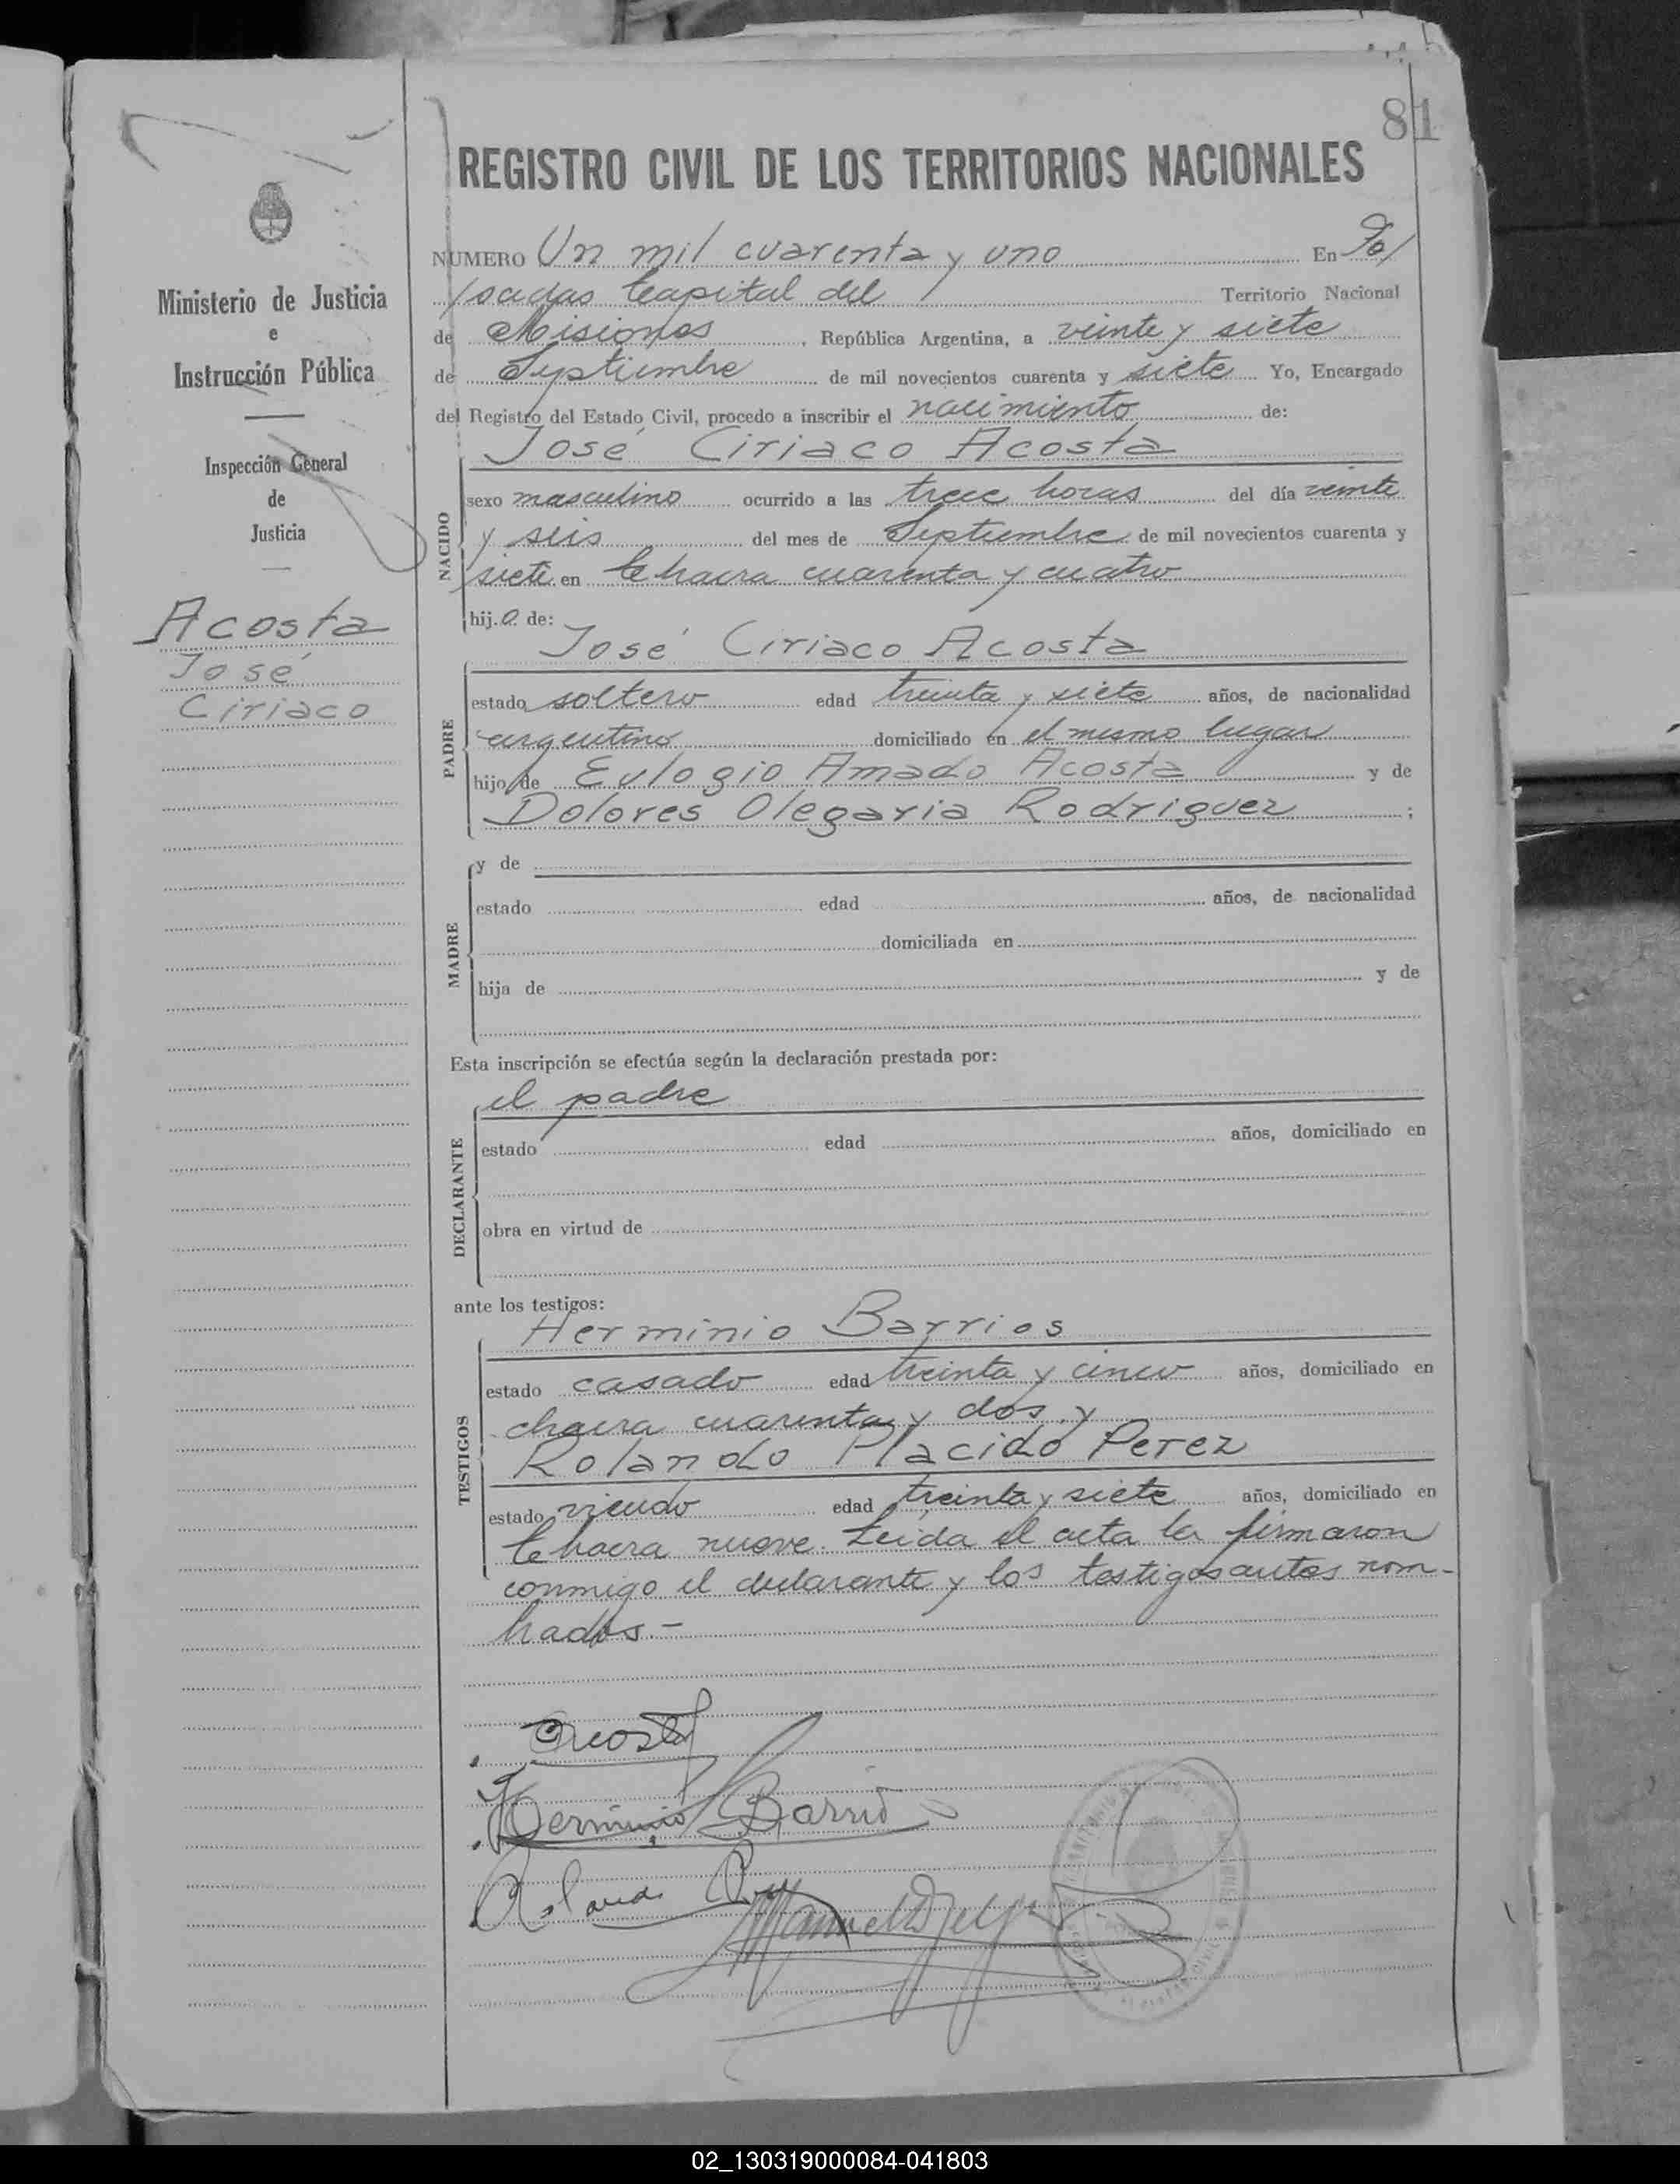 81
REGISTRO CIVIL DE LOS TERRITORIOS NACIONALES
NUMERO Un mil cuarenta y uno En Po/
/sadas Capital del Territorio Nacional
de Misiones, República Argentina, a veinte y siete
de Septiembre de mil novecientos cuarenta y siete Yo, Encargado
del Registro del Estado Civil, procedo a inscribir el nacimiento de:
José Ciriaco Acosta
NACIDO
sexo masculino ocurrido a las trece horas del día veinte
y seis del mes de Septiembre de mil novecientos cuarenta y
siete en Chacra cuarenta y cuatro
hijo de:
José Ciriaco Acosta
PADRE
estado soltero edad treinta y siete años, de nacionalidad
argentino domiciliado en el mismo lugar
hijo de Eulogio Amado Acosta y de
Dolores Olegaria Rodriguez ;
MADRE
y de
estado edad años, de nacionalidad
domiciliada en
hija de y de
Esta inscripción se efectúa según la declaración prestada por:
el padre
DECLARANTE
estado edad años, domiciliado en
obra en virtud de
ante los testigos:
Herminio Barrios
TESTIGOS
estado casado edad treinta y cinco años, domiciliado en
chacra cuarenta y dos y
Rolando Placido Perez
estado viudo edad treinta y siete años, domiciliado en
Chacra nueve. Leida el acta la firmaron
conmigo el declarante y los testigos antes nom-
brados.-
Acosta
Herminio Barrio
Ministerio de Justicia
e
Instrucción Pública
Inspección General
de
Justicia
Acosta
José
Ciriaco
02_130319000084-041803